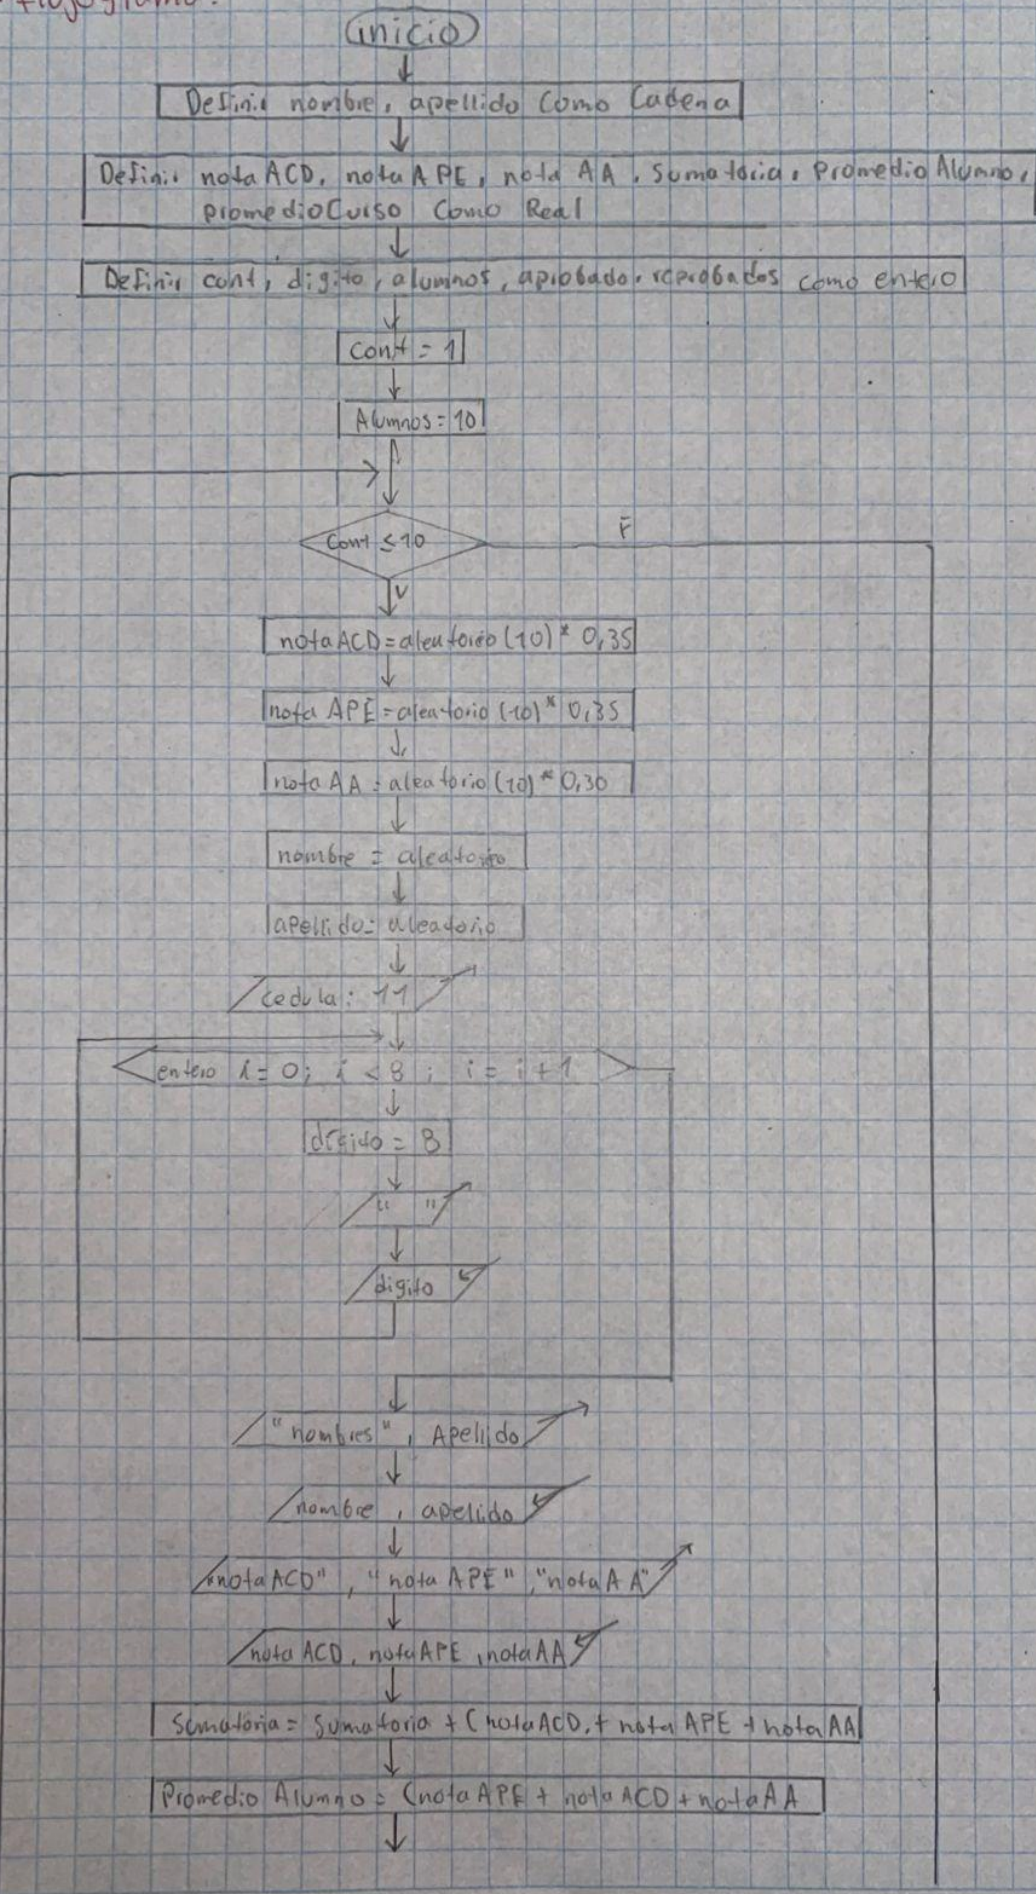 flujograma:
inicio
Definir nombre, apellido Como Cadena
Definir notaACD, nota APE, nota AA, Sumatoria, Promedio Alumno,
promedioCurso Como Real
Definir cont, digito, alumnos, aprobado, reprobados como entero
Cont = 1
Alumnos = 10
Cont ≤ 10
F
V
notaACD = aleatorio (10) * 0,35
nota APE = aleatorio (10) * 0,35
nota AA = aleatorio (10) * 0,30
nombre = aleatorio
apellido = aleadorio
cedula: 11
entero i = 0; i < 8; i = i + 1
digito = 8
" "
digito
"nombres", Apellido
nombre, apellido
"notaACD", "nota APE", "nota AA"
nota ACD, nota APE, nota AA
Sumatoria = Sumatoria + (notaACD, + nota APE + nota AA
Promedio Alumno = (nota APE + nota ACD + nota AA